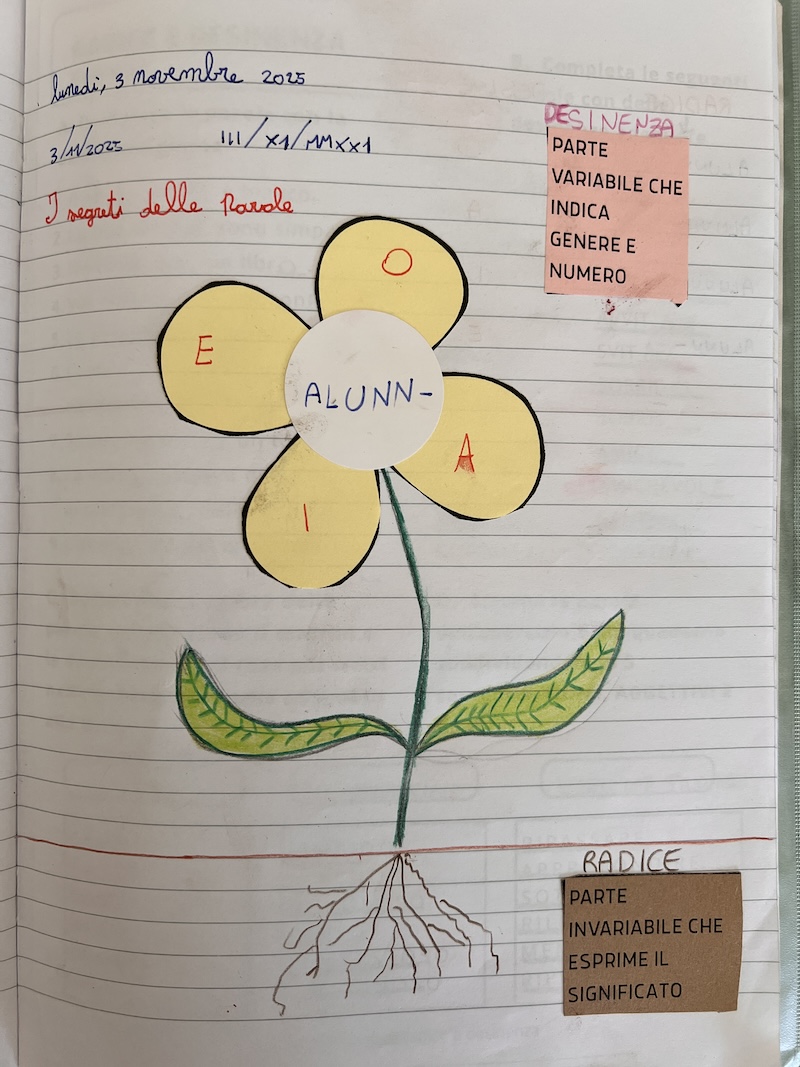 lunedì, 3 novembre 2025
3/11/2025 III/XI/MMXXI
I segreti delle Parole
DESINENZA
PARTE
VARIABILE CHE
INDICA
GENERE E
NUMERO
O
E
ALUNN-
A
I
RADICE
PARTE
INVARIABILE CHE
ESPRIME IL
SIGNIFICATO